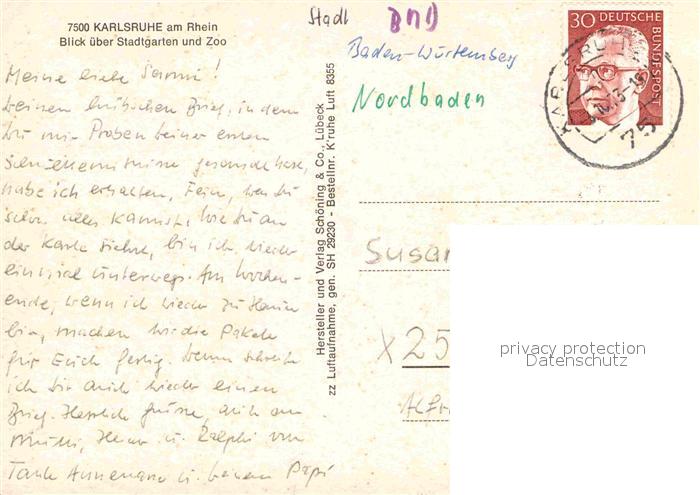 7500 KARLSRUHE am Rhein
Blick über Stadtgarten und Zoo
Meine liebe Sanni!
Deinen hübschen Brief, in dem
Du mir Proben Deiner ersten
gesandt hast,
habe ich erhalten. Fein, was Du
schon alles kannst. Wie Du an
der Karte siehst, bin ich wieder
einmal unterwegs. Am Wochen-
ende, wenn ich wieder zu Hause
bin, machen wir die Pakete
für Euch fertig. Dann schreibe
ich Dir auch wieder einen
Brief. Herzliche Grüsse, auch an
Mutti, u. Ralphi von
Tante Annemarie u. Deinem Papi
Hersteller und Verlag Schöning & Co., Lübeck
zz Luftaufnahme, gen. SH 29230 - Bestellnr. K'ruhe Luft 8355
Stadt
BRD
Baden-Würtemberg
Nordbaden
30 DEUTSCHE
BUNDESPOST
75
Susan
X 25
privacy protection
Datenschutz